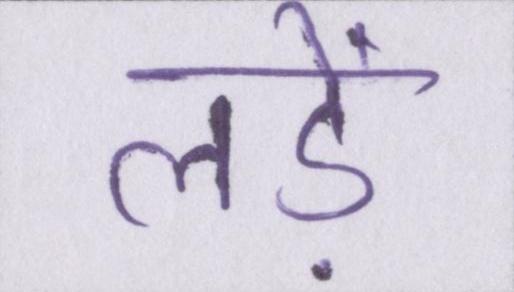 लड़ें